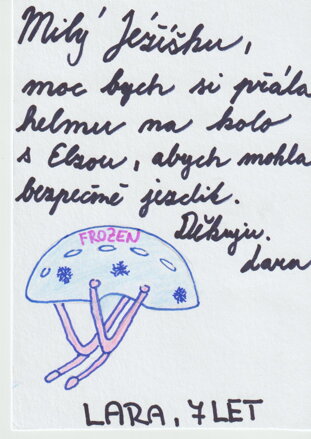 Milý Ježíšku,
moc bych si přála
helmu na kolo
s Elzou, abych mohla
bezpečně jezdit.
Děkuju.
Lara
FROZEN
LARA, 7 LET